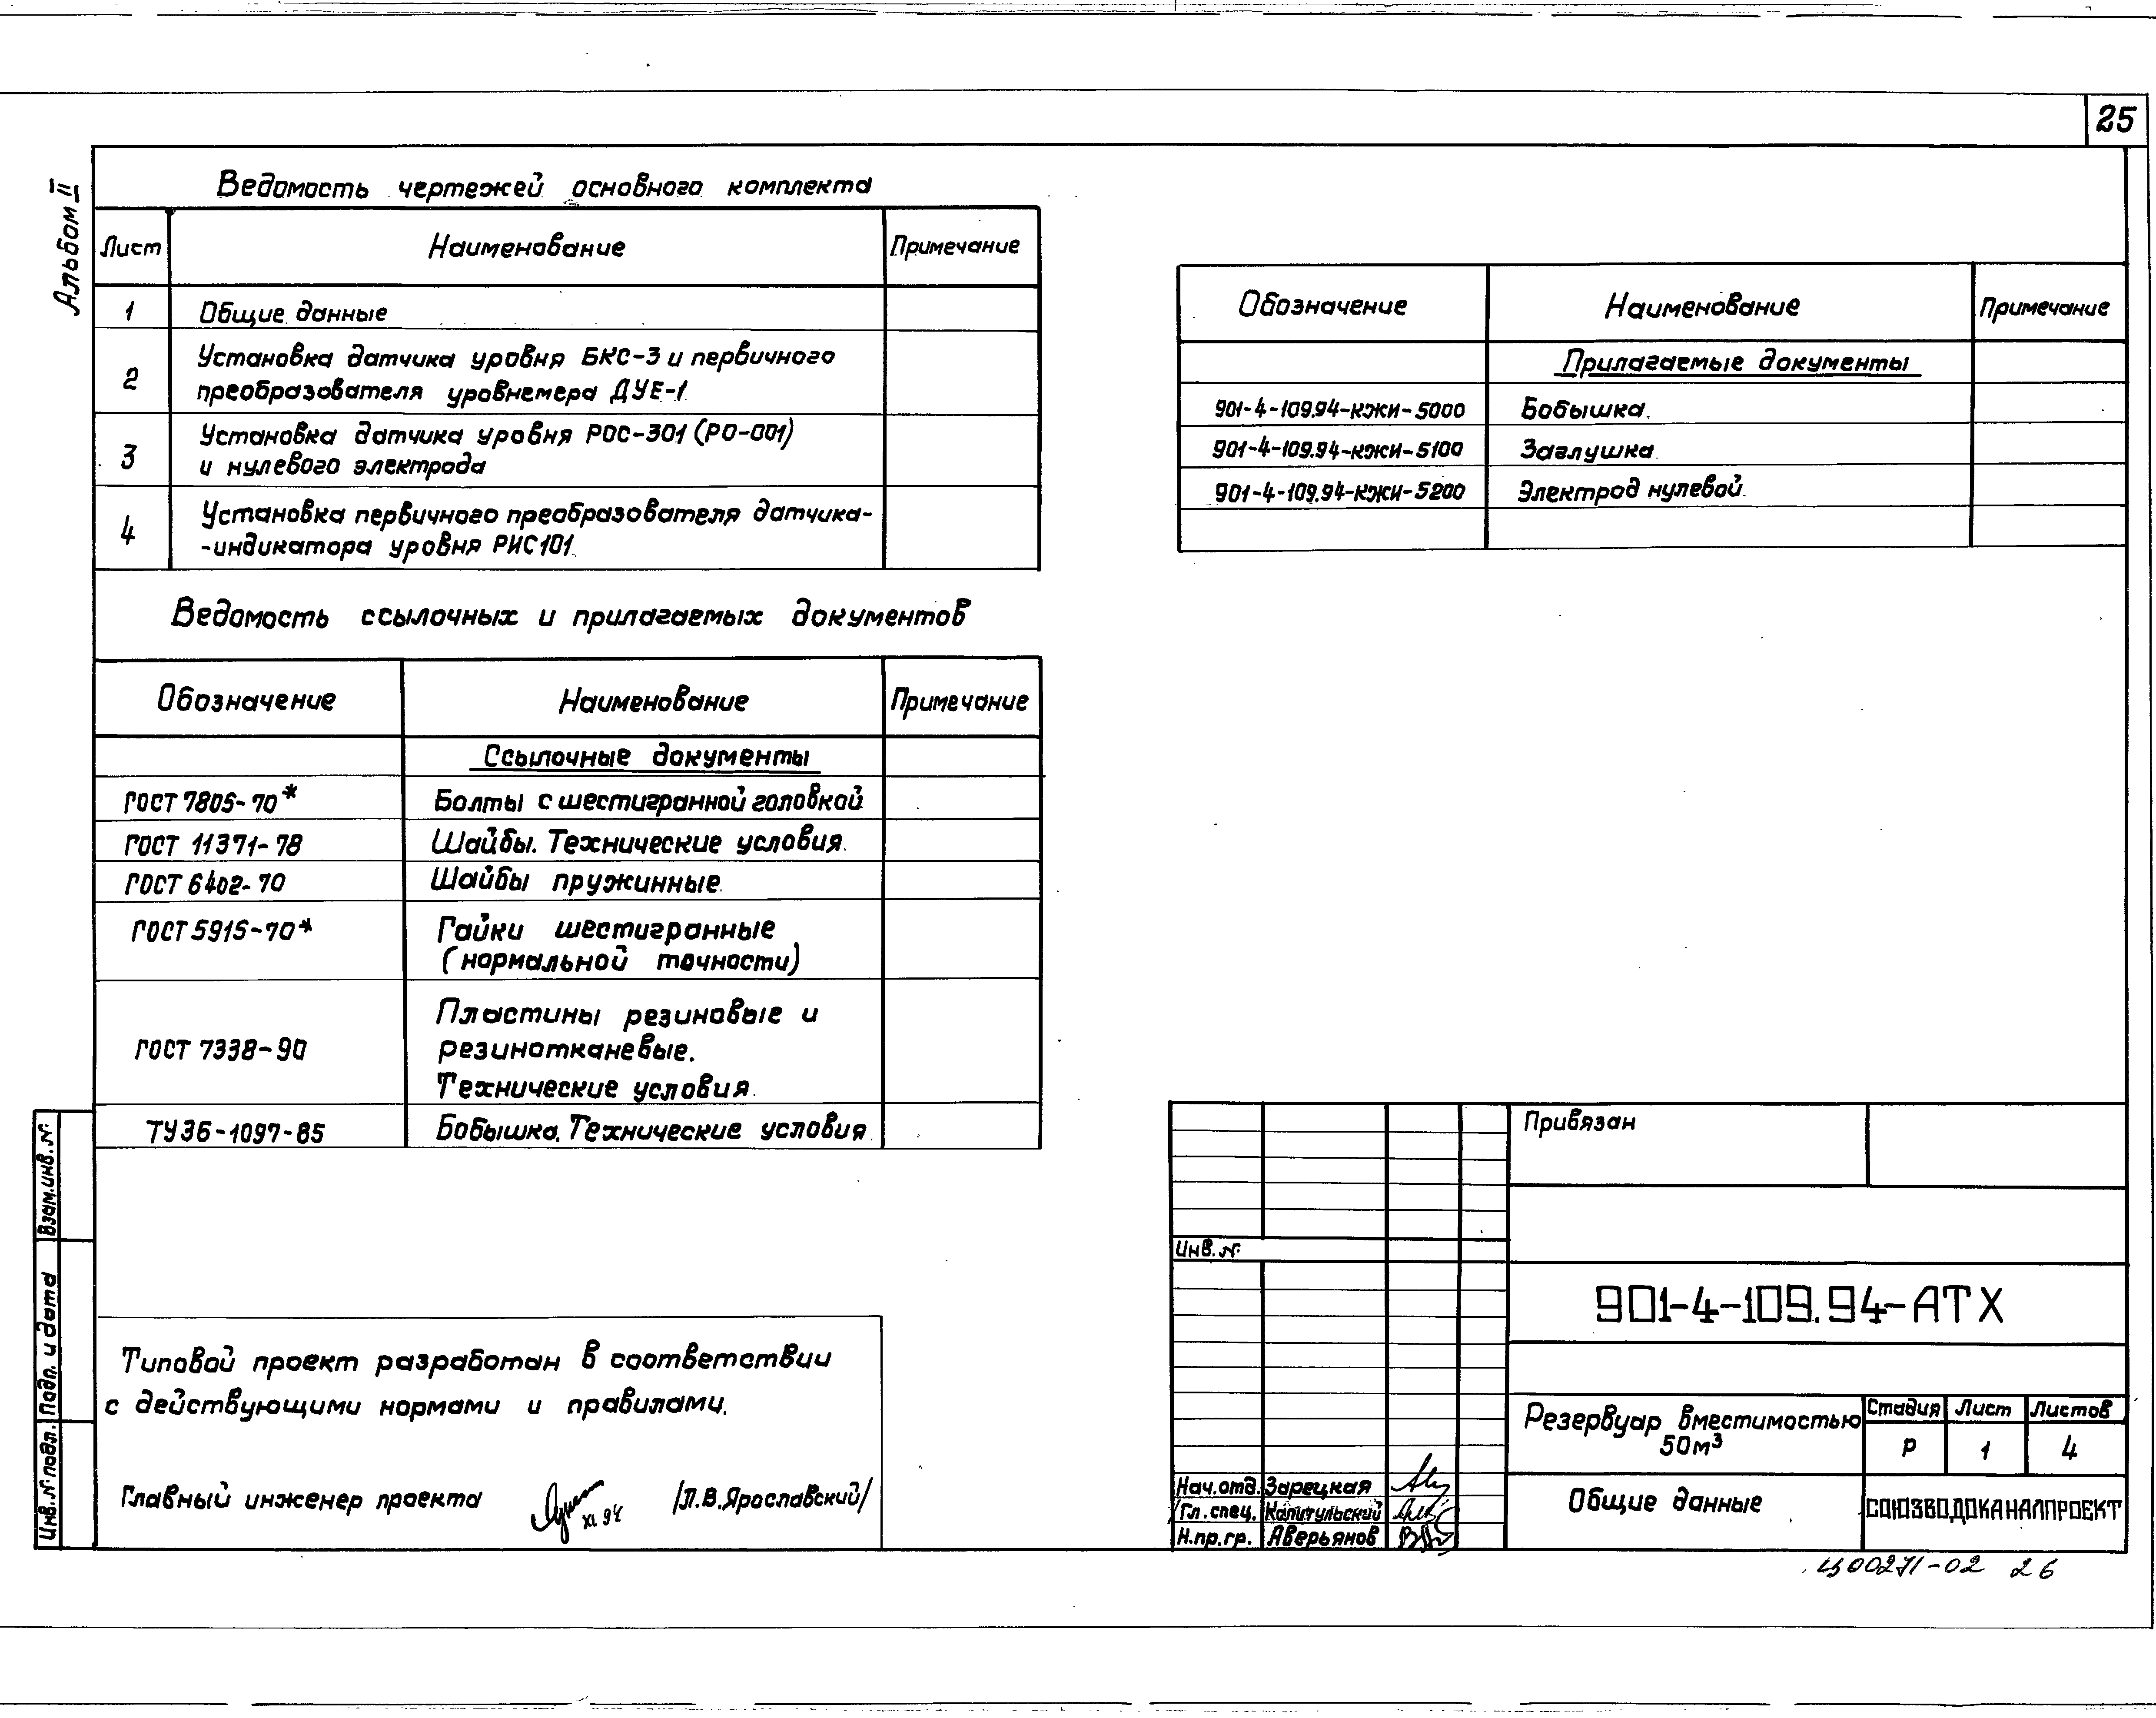 25
Альбом II
Ведомость чертежей основного комплекта
Лист Наименование Примечание
1 Общие данные
2 Установка датчика уровня БКС-3 и первичного
преобразователя уровнемера ДУЕ-1
3 Установка датчика уровня РОС-301 (РО-001)
и нулевого электрода
4 Установка первичного преобразователя датчика-
-индикатора уровня РИС101.
Ведомость ссылочных и прилагаемых документов
Обозначение Наименование Примечание
Ссылочные документы
ГОСТ 7805-70* Болты с шестигранной головкой
ГОСТ 11371-78 Шайбы. Технические условия.
ГОСТ 6402-70 Шайбы пружинные.
ГОСТ 5915-70* Гайки шестигранные
(нормальной точности)
ГОСТ 7338-90 Пластины резиновые и
резинотканевые.
Технические условия.
ТУ36-1097-85 Бобышка. Технические условия.
Обозначение Наименование Примечание
Прилагаемые документы
901-4-109.94-КЖИ-5000 Бобышка.
901-4-109.94-КЖИ-5100 Заглушка.
901-4-109.94-КЖИ-5200 Электрод нулевой.
Типовой проект разработан в соответствии
с действующими нормами и правилами.
Главный инженер проекта XI.94 /Л.В.Ярославский/
Взам.инв.N:
Подп. и дата
Инв.N подл.
Привязан
Инв.N:
901-4-109.94-АТХ
Резервуар вместимостью
50м³
Стадия Лист Листов
Р 1 4
Нач.отд. Зарецкая
Гл.спец. Капитульский
Н.пр.гр. Аверьянов
Общие данные
СОЮЗВОДОКАНАЛПРОЕКТ
Ц00271-02 26